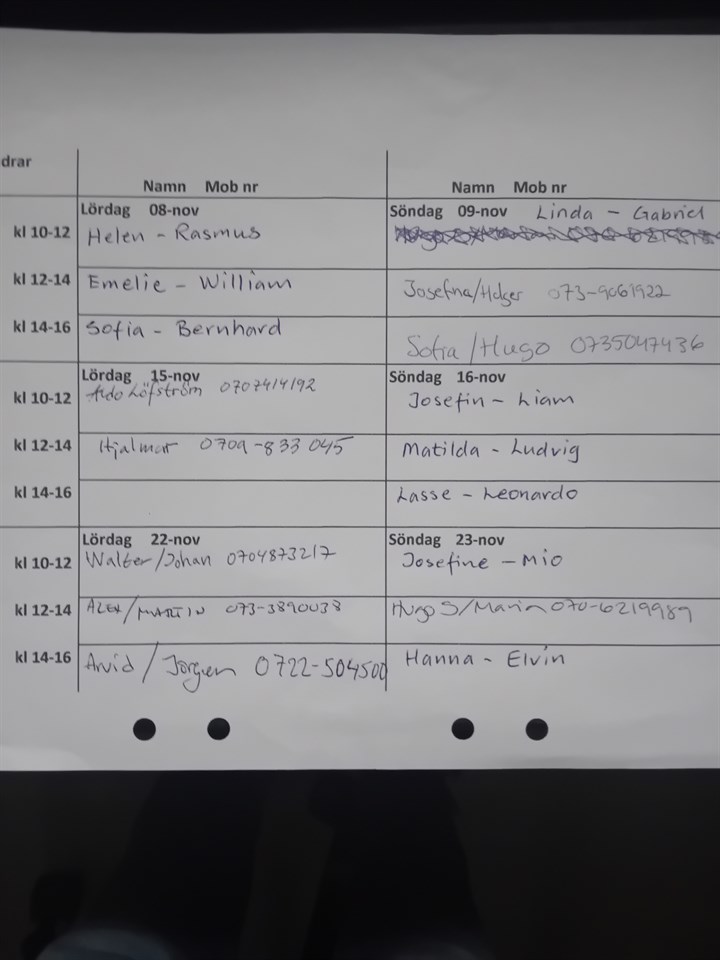 drar
Namn Mob nr Namn Mob nr
Lördag 08-nov Söndag 09-nov Linda - Gabriel
kl 10-12 Helen - Rasmus
kl 12-14 Emelie - William Josefine/Holger 073-9061922
kl 14-16 Sofia - Bernhard Sofia/Hugo 0735047436
Lördag 15-nov Söndag 16-nov
kl 10-12 Löfström 0707414192 Josefin - Liam
kl 12-14 Hjalmar 0709-833 045 Matilda - Ludvig
kl 14-16 Lasse - Leonardo
Lördag 22-nov Söndag 23-nov
kl 10-12 Walter/Johan 0704873217 Josefine - Mio
kl 12-14 ALEX/MARTIN 073-3890038 Hugo S/Maria 070-6219989
kl 14-16 Arvid / Jörgen 0722-504500 Hanna - Elvin